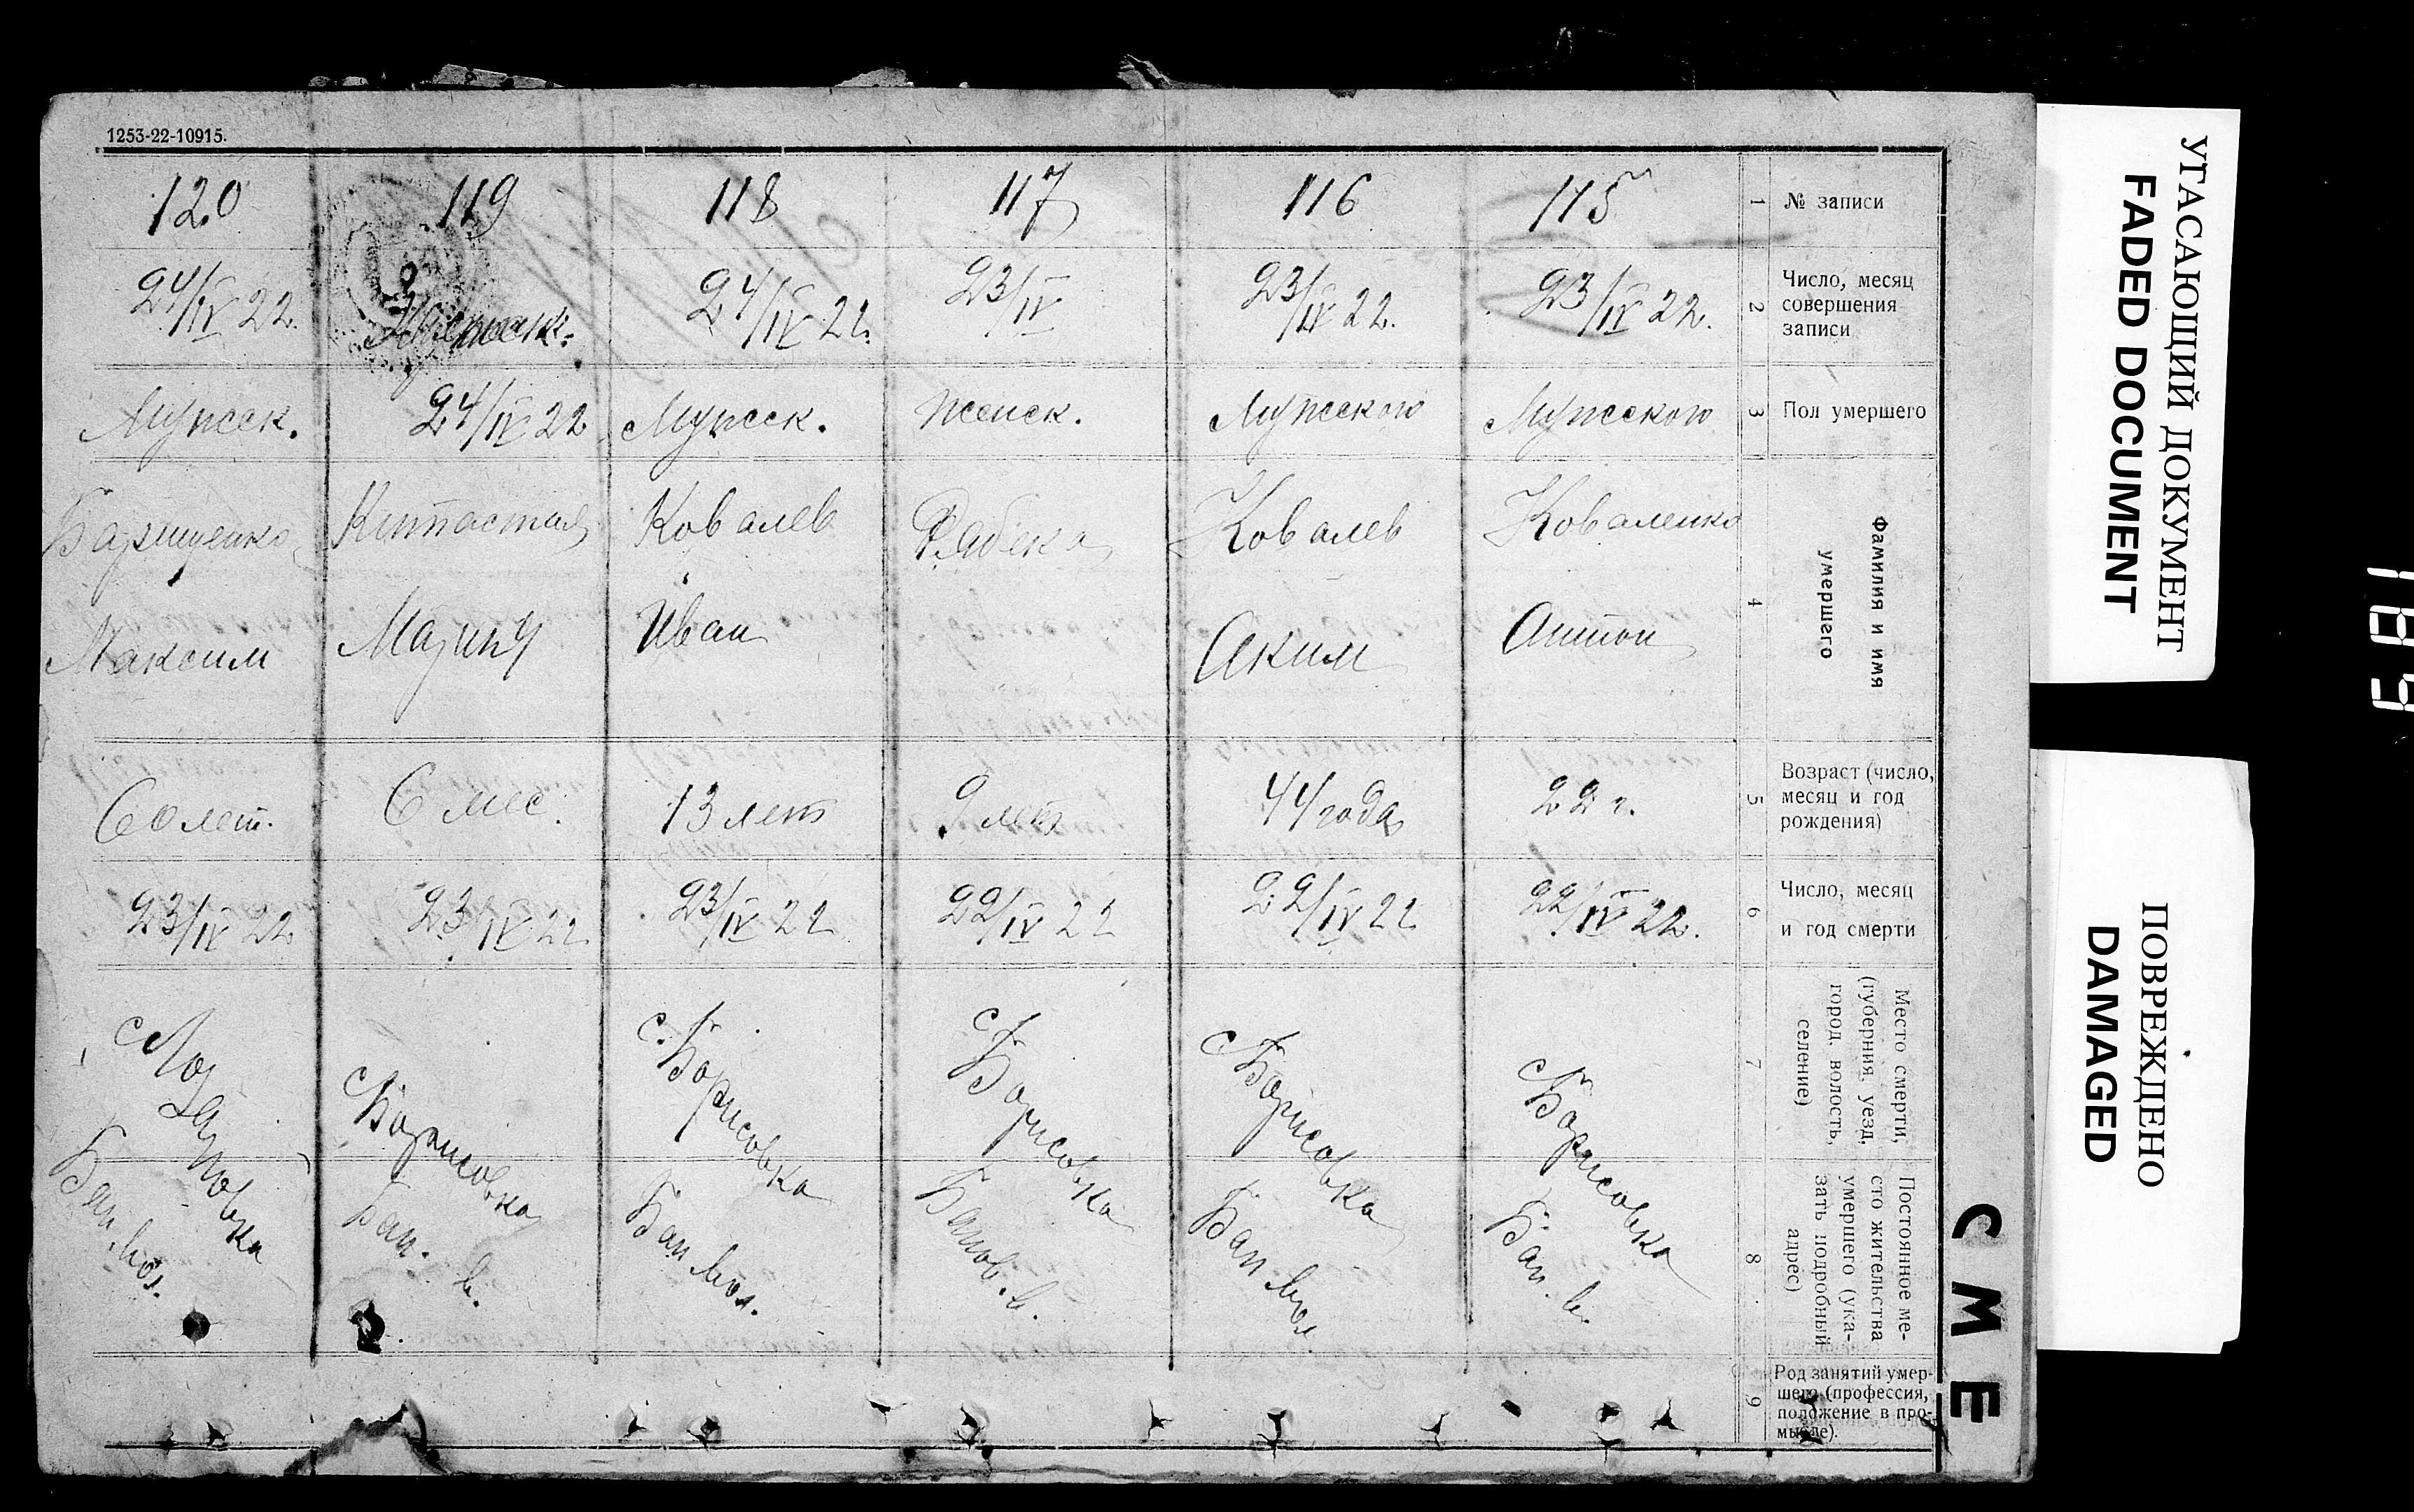 1253-22-10915.
120 119 118 117 116 115 1 № записи
24/IV 22. Женск. 24/IV 22. 23/IV 23/IV 22. 23/IV 22. 2 Число, месяц
совершения
записи
Мужск. 24/IV 22 Мужск. Женск. Мужского Мужского 3 Пол умершего
Китастая Ковалев Ковалев Коваленко 4 Фамилия и имя
умершего
Максим Иван Аким Антон
60 лет. 6 мес. 13 лет 9 лет 44 года 22 г. 5 Возраст (число,
месяц и год
рождения)
23/IV 22 23/IV 22 23/IV 22 22/IV 22 22/IV 22 22/IV 22. 6 Число, месяц
и год смерти
с. Борисовка
Бан. в.
с. Борисовка
Бан. вол.
с Борисовка
Банов. в.
с Борисовка
Бан. вол
с Борисовка
Бан. в.
7 Место смерти,
(губерния, уезд,
город, волость,
селение)
Бан. вол.
8 Постоянное ме-
сто жительства
умершего (ука-
зать подробный
адрес)
9 Род занятий умер-
шего (профессия,
положение в про-
мысле).
СМЕ
УГАСАЮЩИЙ ДОКУМЕНТ
FADED DOCUMENT
ПОВРЕЖДЕНО
DAMAGED